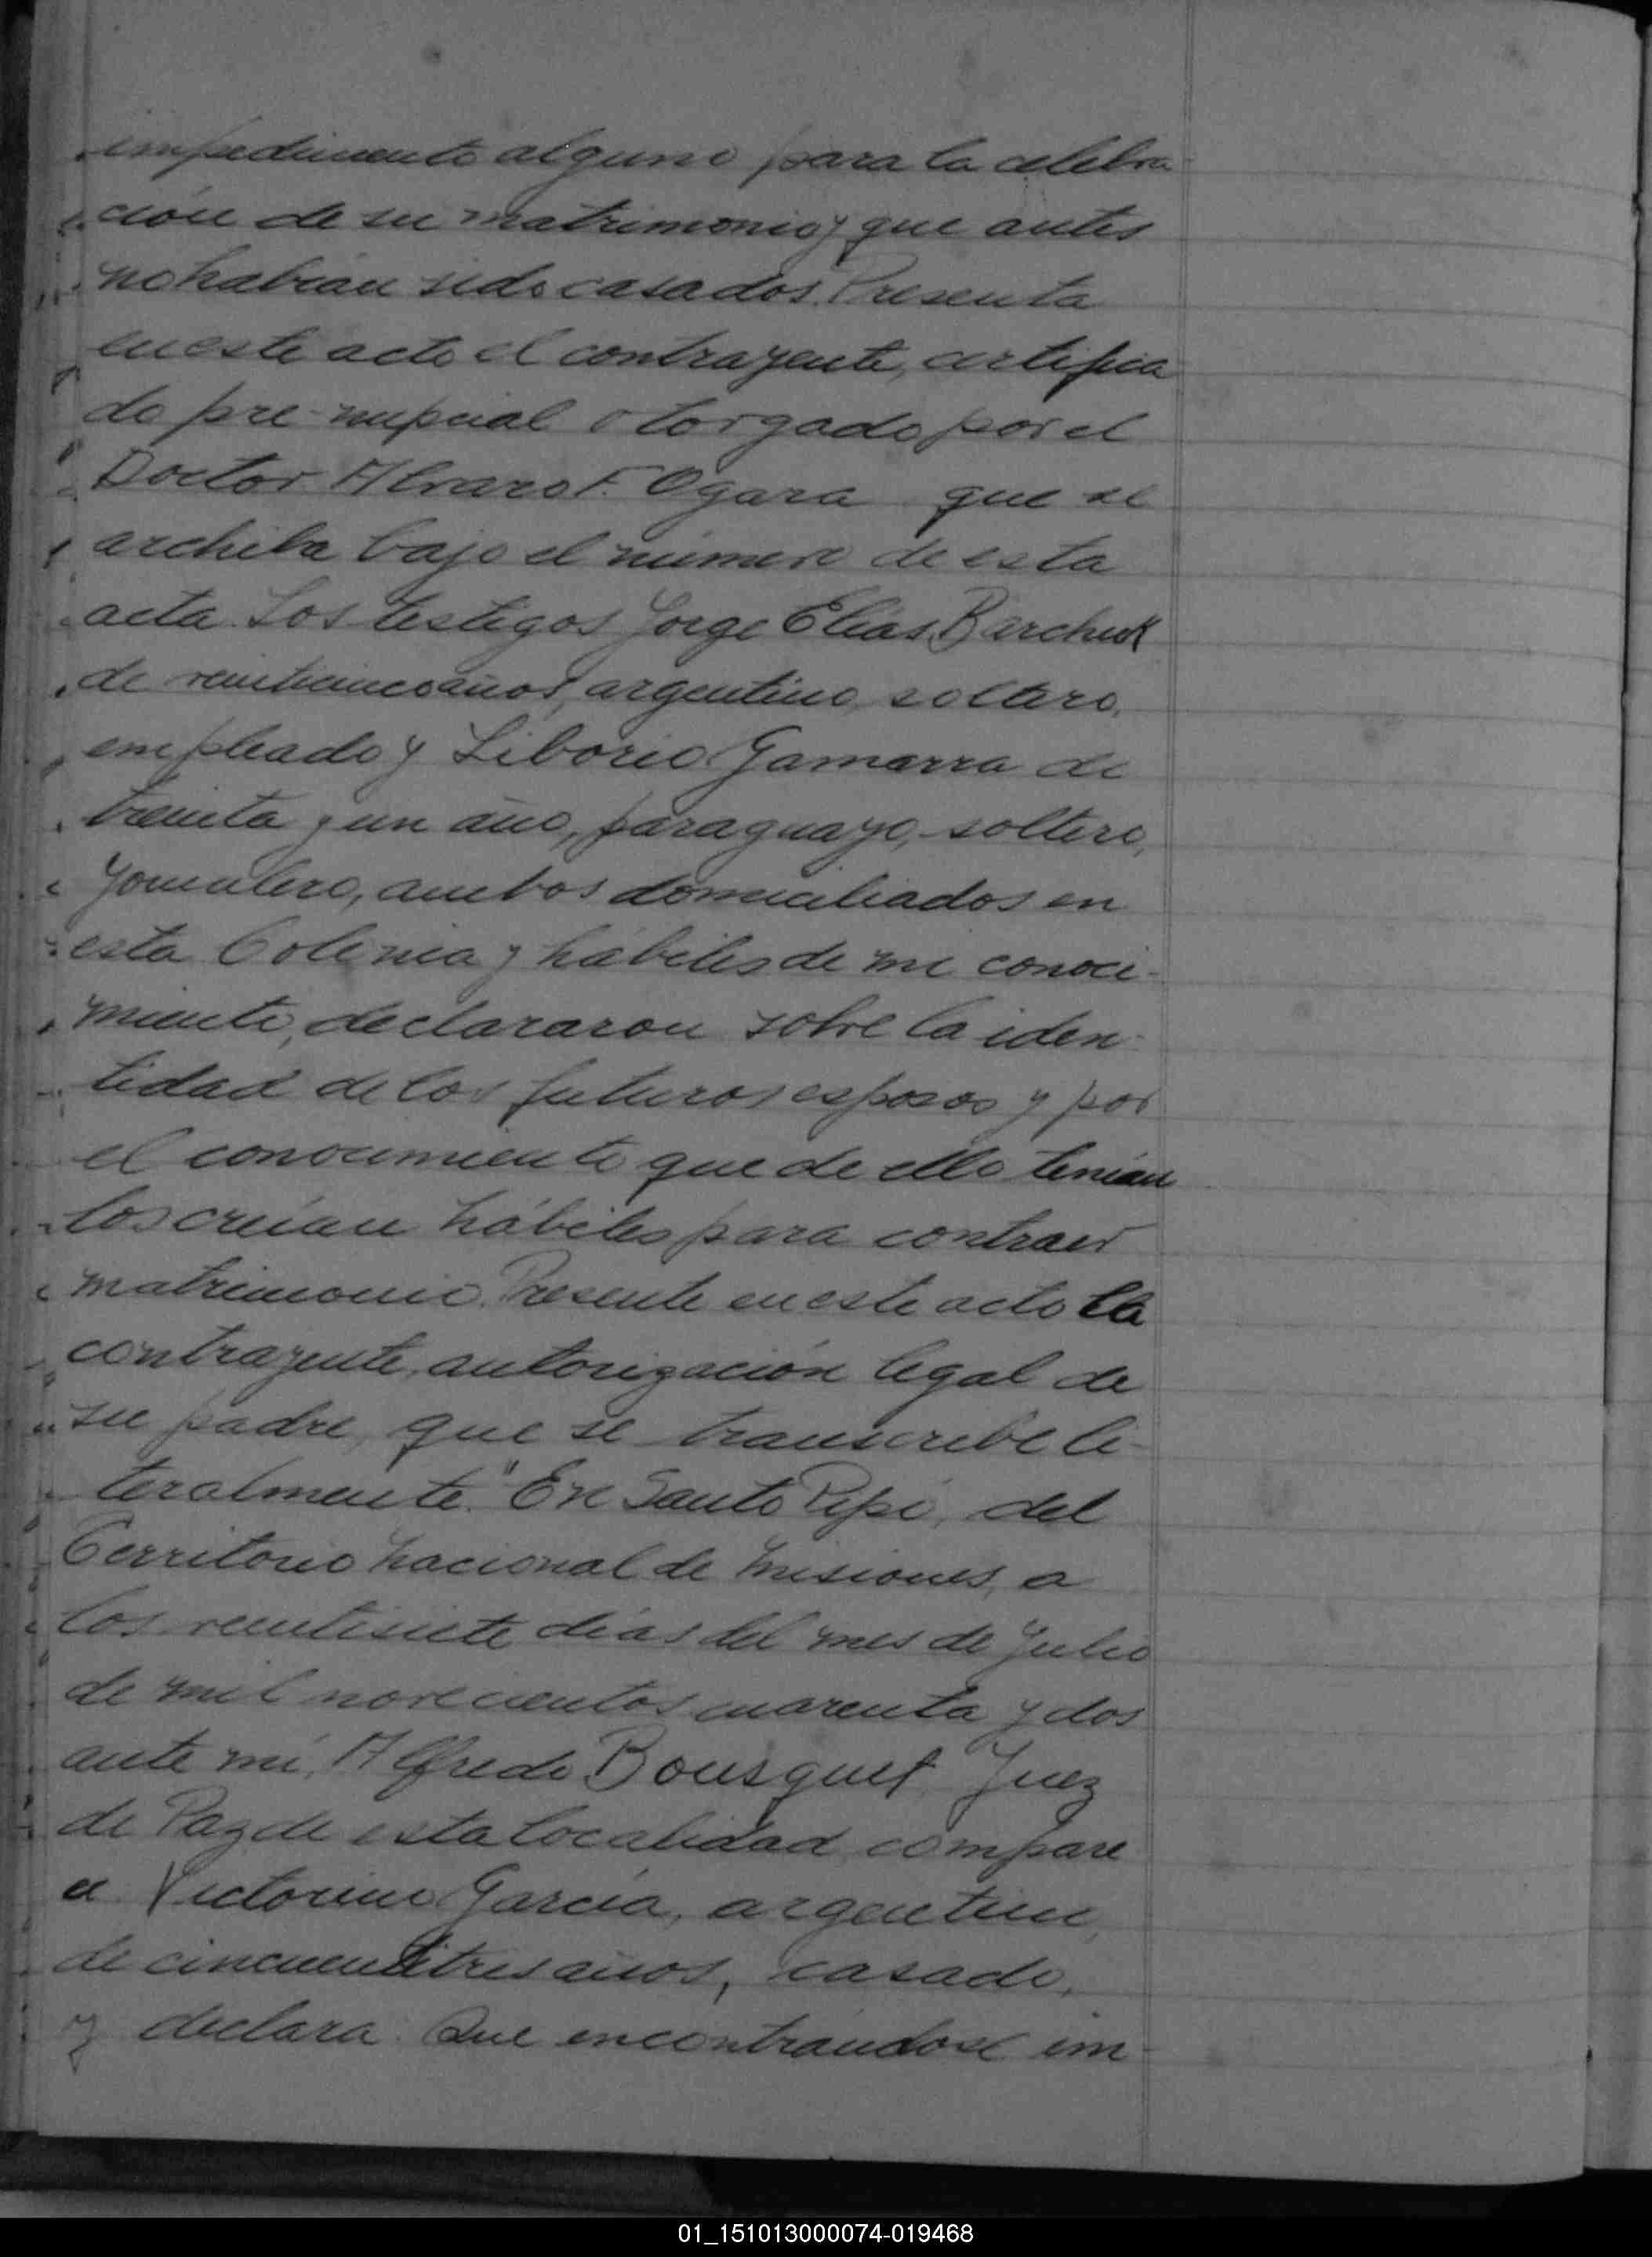 impedimento alguno para la celebra
ción de su matrimonio y que antes
no habían sido casados. Presenta
en este acto el contrayente, certifica
do pre-nupcial otorgado por el
Doctor Alvaro F. Ogara que se
archiba bajo el número de esta
acta. Los testigos Jorge Elías Barchuk
de veinticinco años, argentino, soltero,
empleado y Liborio Gamarra de
treinta y un año, paraguayo, soltero,
jornalero, ambos domiciliados en
esta Colonia y hábiles de mi conoci-
miento, declararon sobre la iden-
tidad de los futuros esposos y por
el conocimiento que de ello tenían
los creían hábiles para contraer
matrimonio. Presente en este acto la
contrayente, autorización legal de
su padre, que se transcribe li-
teralmente: "En Santo Pipó, del
Territorio Nacional de Misiones, a
los veintisiete días del mes de Julio
de mil novecientos cuarenta y dos
ante mí, Alfredo Bousquet Juez
de Paz de esta localidad, compare
ce Victorino García, argentino,
de cincuentitres años, casado,
y declara: Que encontrándose im-
01_151013000074-019468